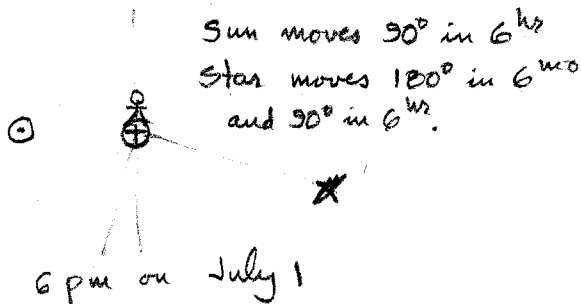 Sun moves 90° in 6ʰʳ
Star moves 180° in 6ᵐᵒ
and 90° in 6ʰʳ.
6 pm on July 1